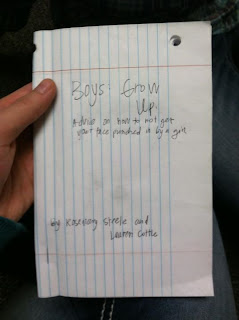 Boys: Grow
Up!
Advice on how to not get
your face punched in by a girl
by Rosemary Steele and
Lauren Cottle